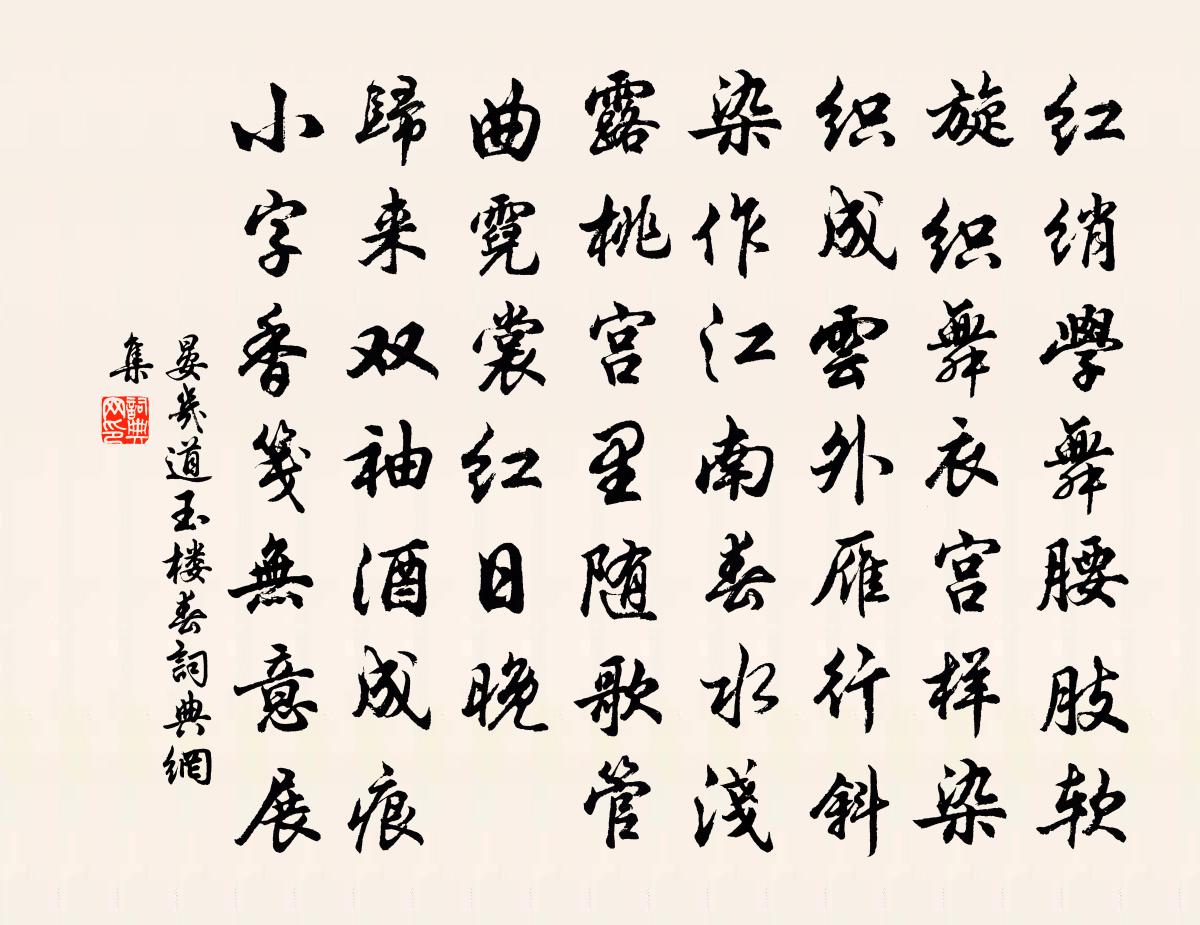 红绡學舞腰肢软
旋织舞衣宫样染
织成雲外雁行斜
染作江南春水淺
露桃宫里随歌管
曲霓裳红日晚
歸来双袖酒成痕
小字香箋無意展
晏幾道玉楼春詞典網
集
詞典
网印